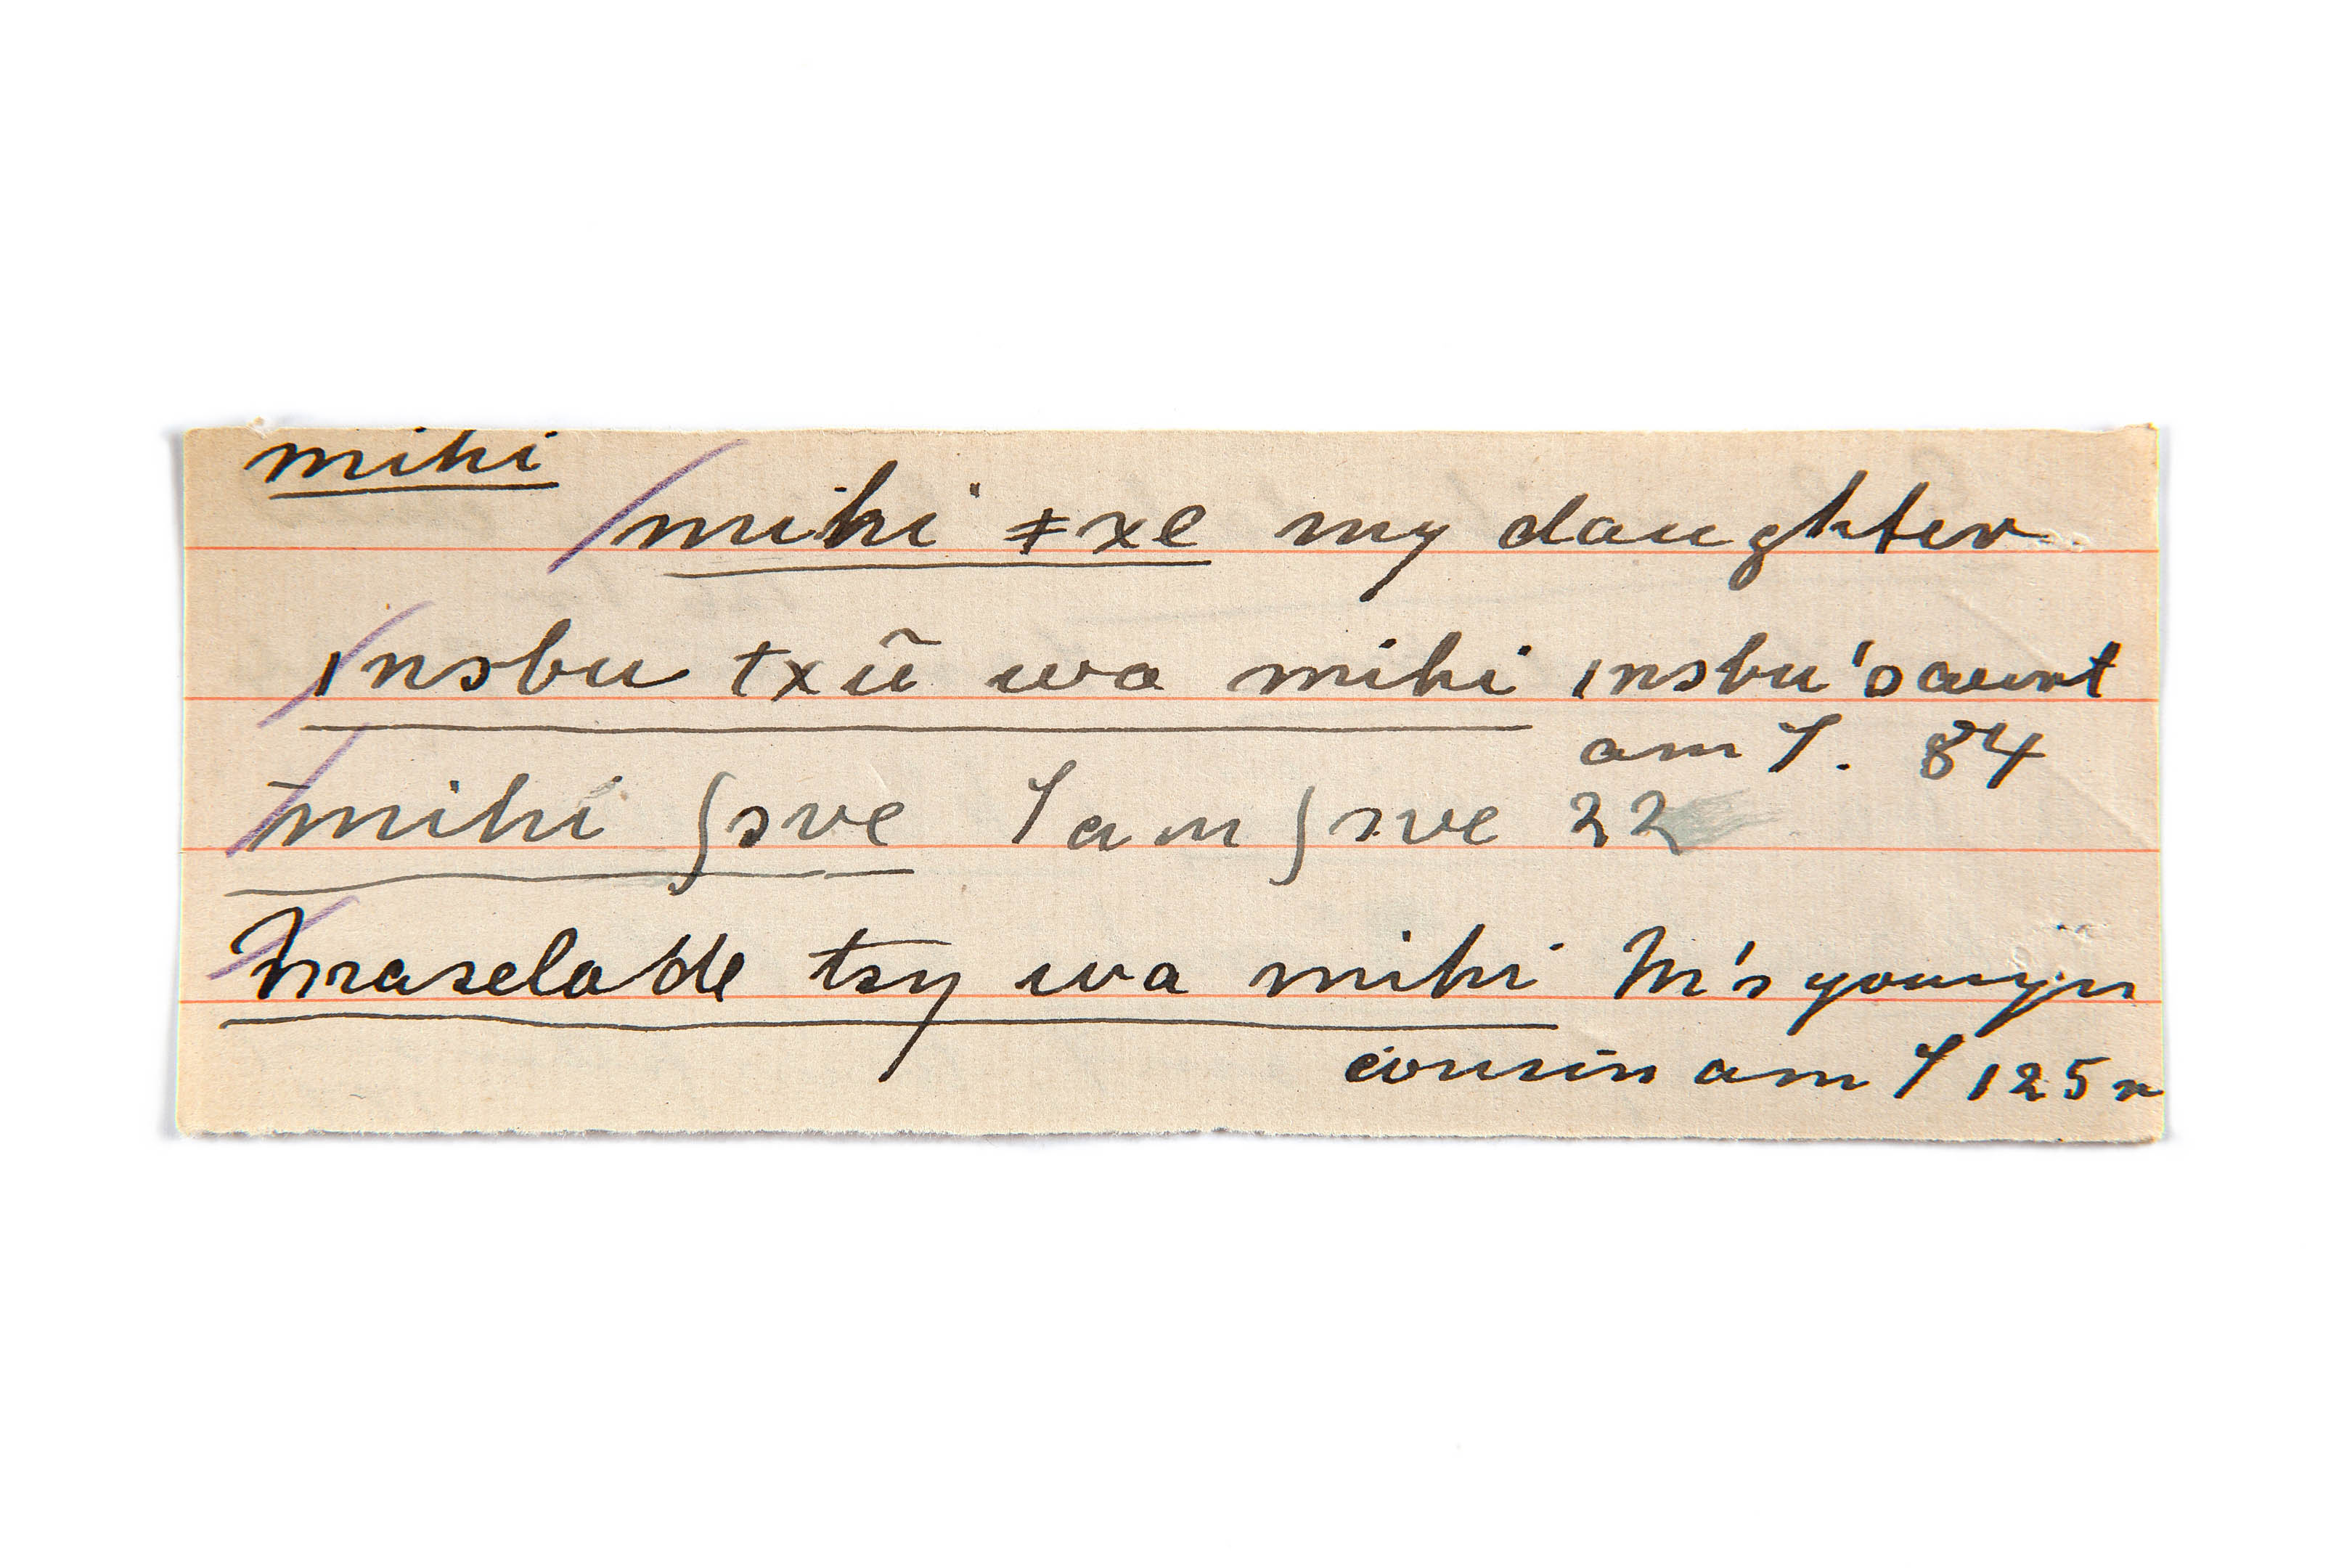 mihi
mihi ǂxe my daughter
ınsbu txũ wa mihi ınsbu's aunt
am I. 84
mihi ʃsve I am ʃsve 22
maselade tsy wa mihi M's youngr
cousin am I 125 r